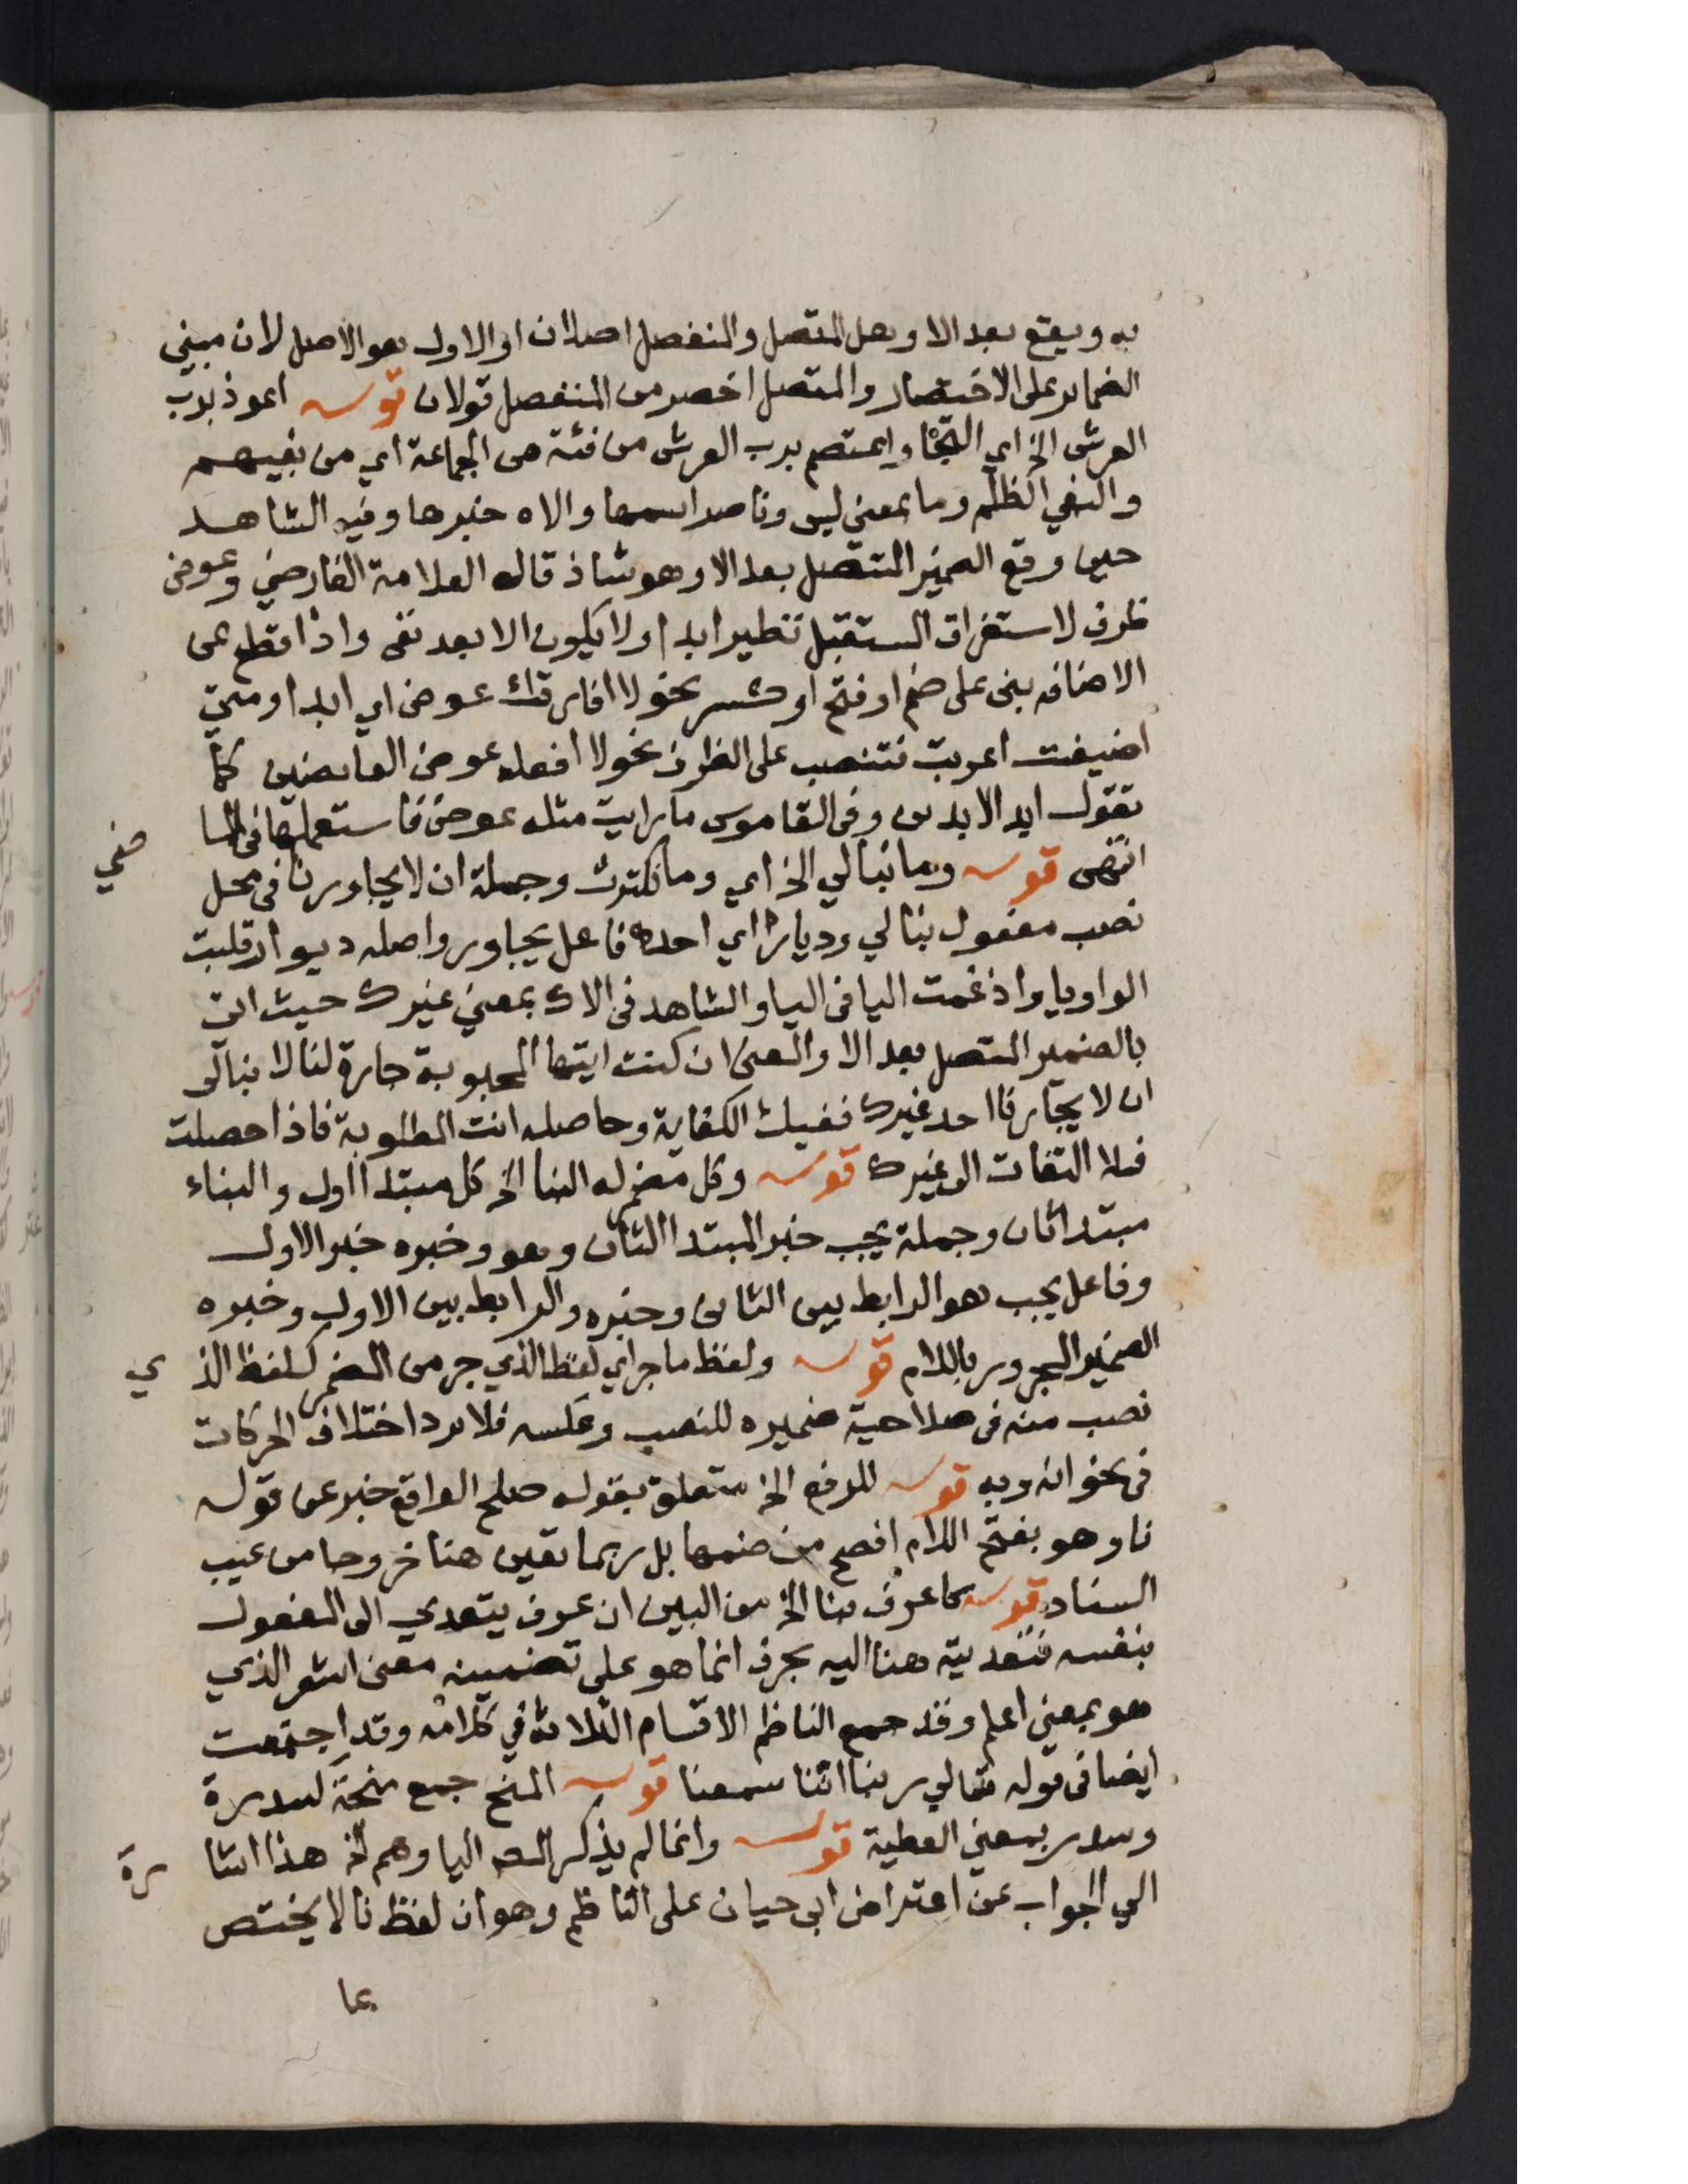 به ويقع بعد الا وهل المتصل والمنفصل اصلان او الاول هو الاصل لان مبني
الضماير على الاختصار والمتصل اخصر من المنفصل قولان قوله اعوذ برب
العرش الخ اي التجا واعتصم برب العرش من فئة هى الجماعة اي من بغيهم
والبغي الظلم وما بمعنى ليس وناصر اسمها والاه خبرها وفيه الشاهد
حيث وقع الضمير المتصل بعد الا وهو شاذ قاله العلامة الفارضي وعوض
ظرف لاستغراق المستقبل نظير ابدا ولا يكون الا بعد نفى واذا قطع عن
الاضافه بنى على ضم او فتح او كسر نحو لا افارقك عوض اي ابدا ومتى
اضيفت اعربت فتنصب على الظرف نحو لا افعله عوض العايضين كما
تقول ابد الابدين وفى القاموس ما رايت مثله عوض فاستعملها فى الما
ضي
انتهى قوله وما نبالي الخ اي وما نكترث وجملة ان لا يجاورنا فى محل
نصب مفعول نبالي وديارا اي احدا فاعل يجاور واصله ديوار قلبت
الواو يا وادغمت اليا فى اليا والشاهد فى الاك بمعنى غيرك حيث اتى
بالضمير المتصل بعد الا والمعنى ان كنت ايتها المحبوبة جارة لنا لا نبالى
ان لا يجارنا احد غيرك ففيك الكفاية وحاصله انت المطلوبة فاذا حصلت
فلا التفات الى غيرك قوله وكل مضمر له البنا الخ كل مبتدا اول والبناء
مبتدا ثان وجملة يجب خبر المبتدا الثان وهو وخبره خبر الاول
وفاعل يجب هو الرابط بين الثانى وخبره والرابط بين الاول وخبره
الضمير المجرور باللام قوله ولفظ ما جر اي لفظ الذي جر من المضمر كلفظ الذ
ي
نصب منه فى صلاحية ضميره للنصب وعكسه فلا يرد اختلاف الحركات
فى نحو انه وبه قوله للرفع الخ متعلق بقوله صلح الواقع خبر عن قوله
نا وهو بفتح اللام افصح من ضمها بل ربما تعين هنا خروجا من عيب
السناد قوله كاعرف بنا الخ من البين ان عرف يتعدي الى المفعول
بنفسه فتعديته هنا اليه بحرف انما هو على تضمينه معنى اشعر الذي
هو بمعنى اعلم وقد جمع الناظم الاقسام الثلاثة في كلامه وقد اجتمعت
ايضا فى قوله تعالي ربنا اننا سمعنا قوله المنح جمع منحة كسدرة
وسدر بمعنى العطية قوله وانما لم يذكر المص اليا وهم الخ هذا اشا
رة
الي الجواب عن اعتراض ابى حيان على الناظم وهو ان لفظ نا لا يختص